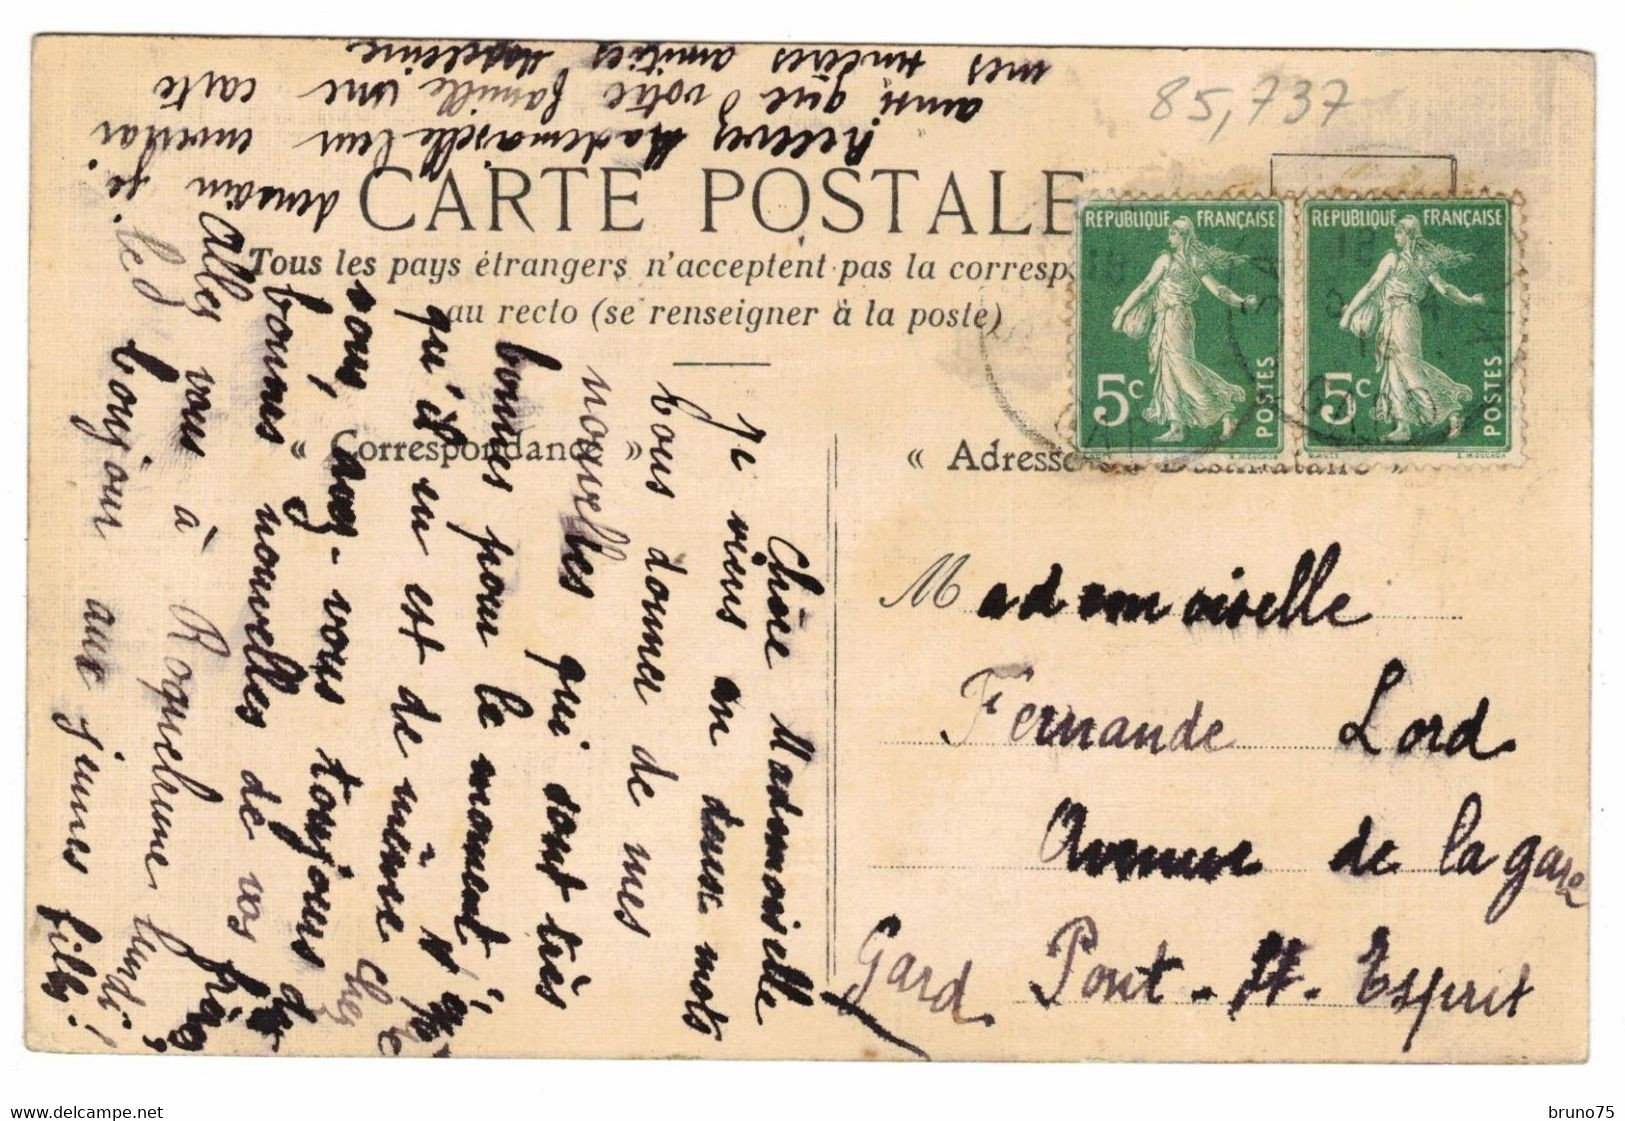 85,737
CARTE POSTALE
Tous les pays étrangers n'acceptent pas la corresp
au recto (se renseigner à la poste)
REPUBLIQUE FRANÇAISE
5c
POSTES
REPUBLIQUE FRANÇAISE
5c
POSTES
« Correspondance »
« Adresse du Destinataire »
Mademoiselle
Fernande Lord
Avenue de la gare
Pont-St-Esprit
Gard
Chère Mademoiselle
Je viens en deux mots
vous donner de mes
nouvelles qui sont très
bonnes pour le moment,
qu'il en est de même chez
vous, avez-vous toujours de
bonnes nouvelles de vos frères
Allez vous à Roquelume lundi,
le bonjour aux jeunes filles!
demain je
Recevez Mademoiselle leur enverrai
ainsi que votre famille une carte
mes sincères amitiés
bruno75
delcampe.net